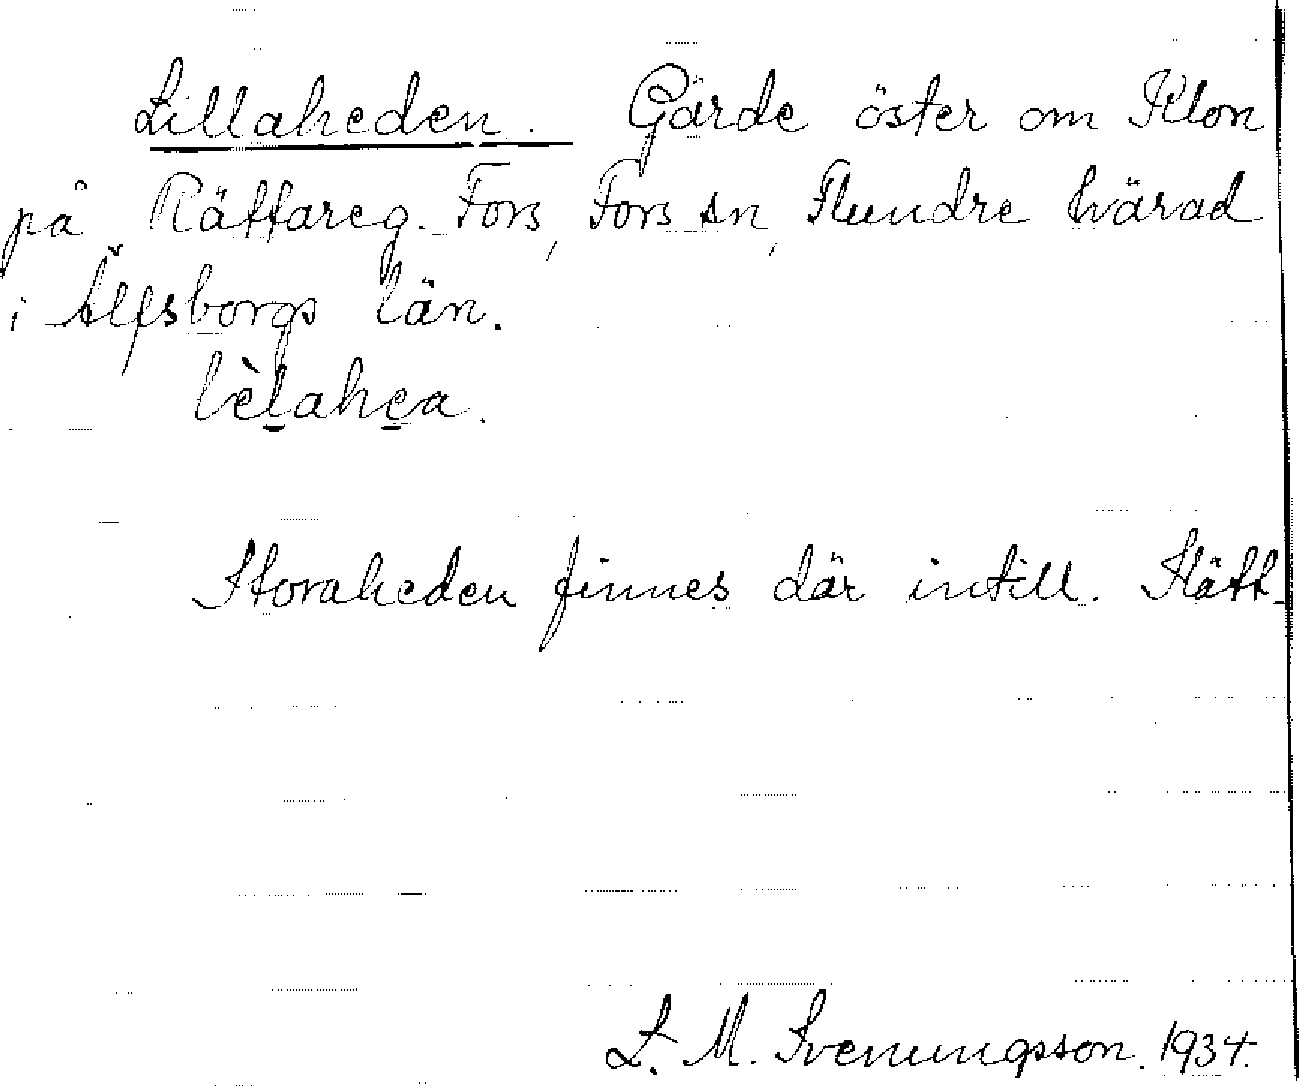 Lillaheden. Gärde öster om Klon
på Rättareg. Fors, Fors sn, Flundre härad
i Älfsborgs län.
lèlahea.
Storaheden finnes där intill. Slätt
L. M. Svenungsson. 1934.